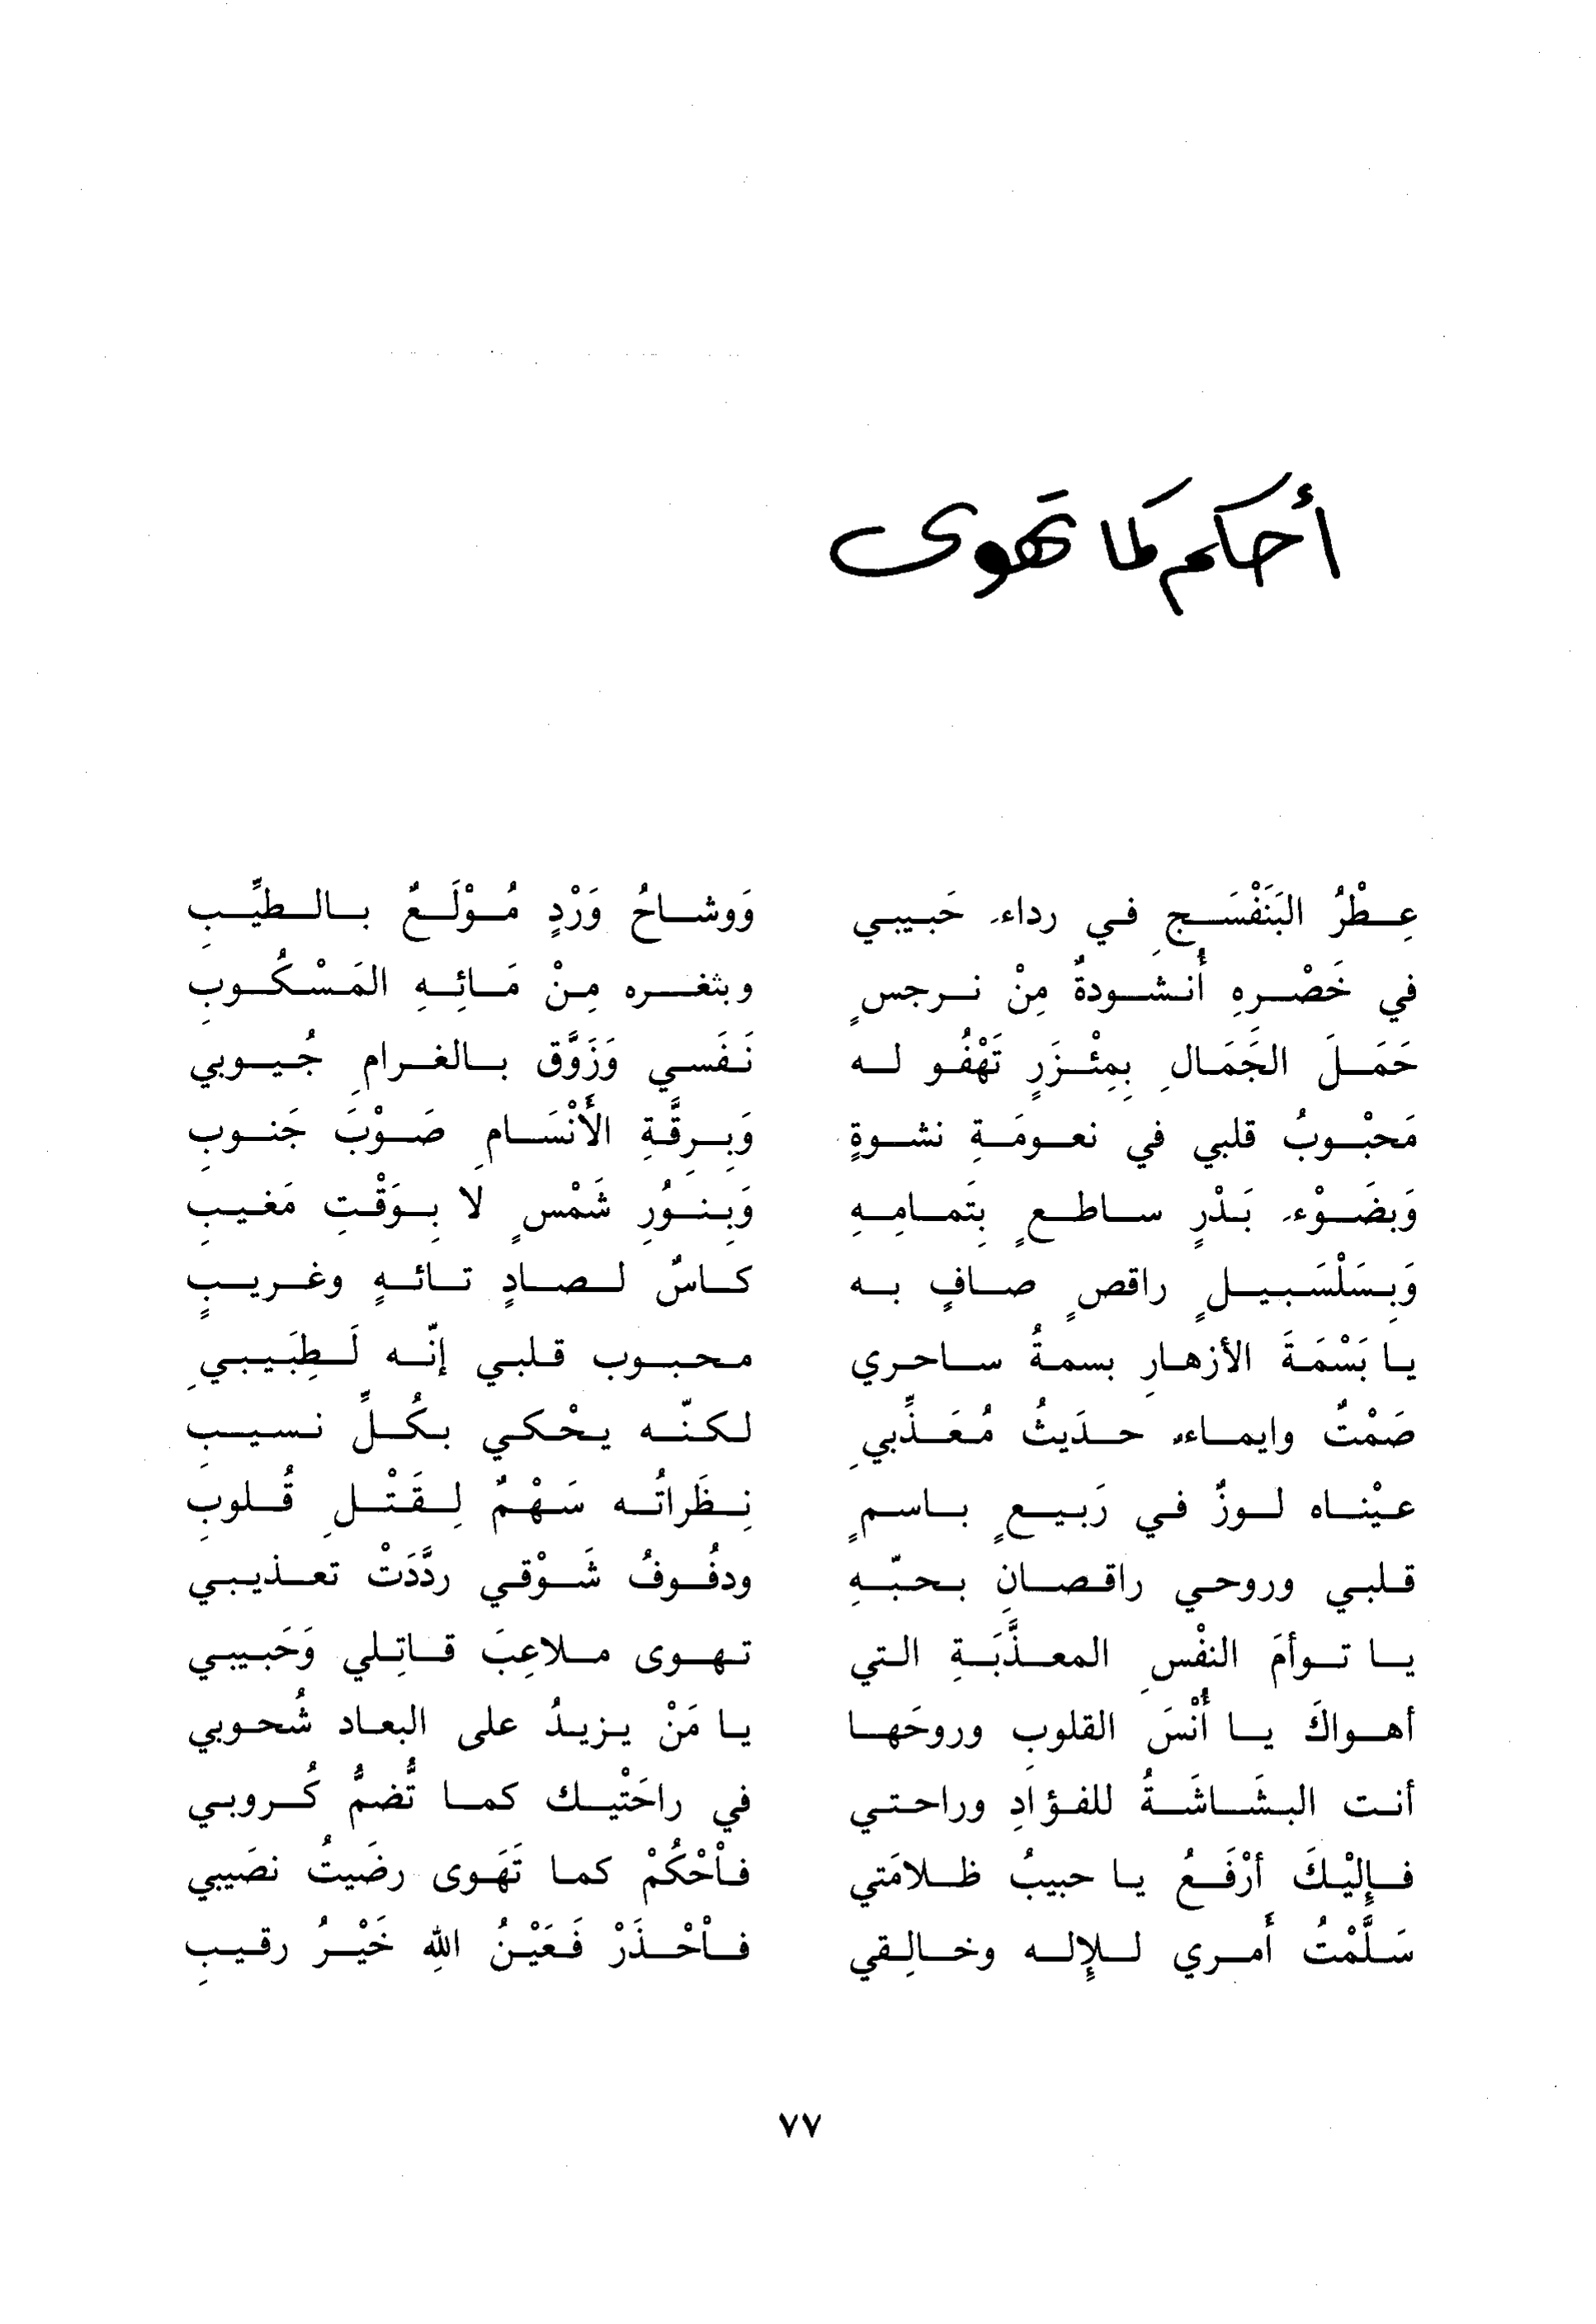 أحكم كما تهوى
عِطْرُ البَنَفْسَجِ في رداءِ حَبيبي وَوشاحُ وَرْدٍ مُوْلَعٌ بالطيِّبِ
في خَصْرِهِ أُنشودةٌ مِنْ نرجسٍ وبثغره مِنْ مَائِهِ المَسْكُوبِ
حَمَلَ الجَمَالِ بِمِئْزَرٍ تَهْفُو له نَفَسي وَزَوَّق بالغرامِ جُيوبي
مَحبْوبُ قلبي في نعومَةِ نشوةٍ وَبِرِقَّةِ الأَنْسَامِ صَوْبَ جَنوبِ
وَبضَوْءِ بَدْرٍ ساطعٍ بِتَمامِهِ وَبِنوُرِ شَمْسٍ لا بِوَقْتِ مَغيبِ
وَبِسَلْسَبيلٍ راقصٍ صافٍ به كاسٌ لصادٍ تائهٍ وغريبٍ
يا بَسْمَةَ الأزهارِ بسمةُ ساحري محبوب قلبي إنّه لَطِبَيبيِ
صَمْتٌ وايماءٌ حدَيثُ مُعَذِّبيِ لكنّه يحْكي بكُلِّ نسيبِ
عيْناه لوزٌ في رَبيعٍ باسمٍ نِظَراتُه سَهْمٌ لِقَتْلِ قُلوبِ
قلبي وروحي راقصانِ بحبّهِ ودفُوفُ شَوْقي ردَّدَتْ تعذيبي
يا توأمَ النفْسِ المعذَّبَةِ التي تهوى ملاعِبَ قاتِلي وَحَبيبي
أهواكَ يا أُنْسَ القلوبِ وروحَها يا مَنْ يزيدُ على البعاد شُحوبي
أنت البشَاشَةُ للفؤادِ وراحتي في راحَتْيك كما تُّضمُّ كُروبي
فإليْكَ أرْفَعُ يا حبيبُ ظلامَتي فاْحْكُمْ كما تَهَوى رضَيتُ نصَيبي
سَلَّمْتُ أَمري للإِله وخالِقي فاْحْذَرْ فَعَيْنُ اللهِ خَيْرُ رقيبِ
٧٧